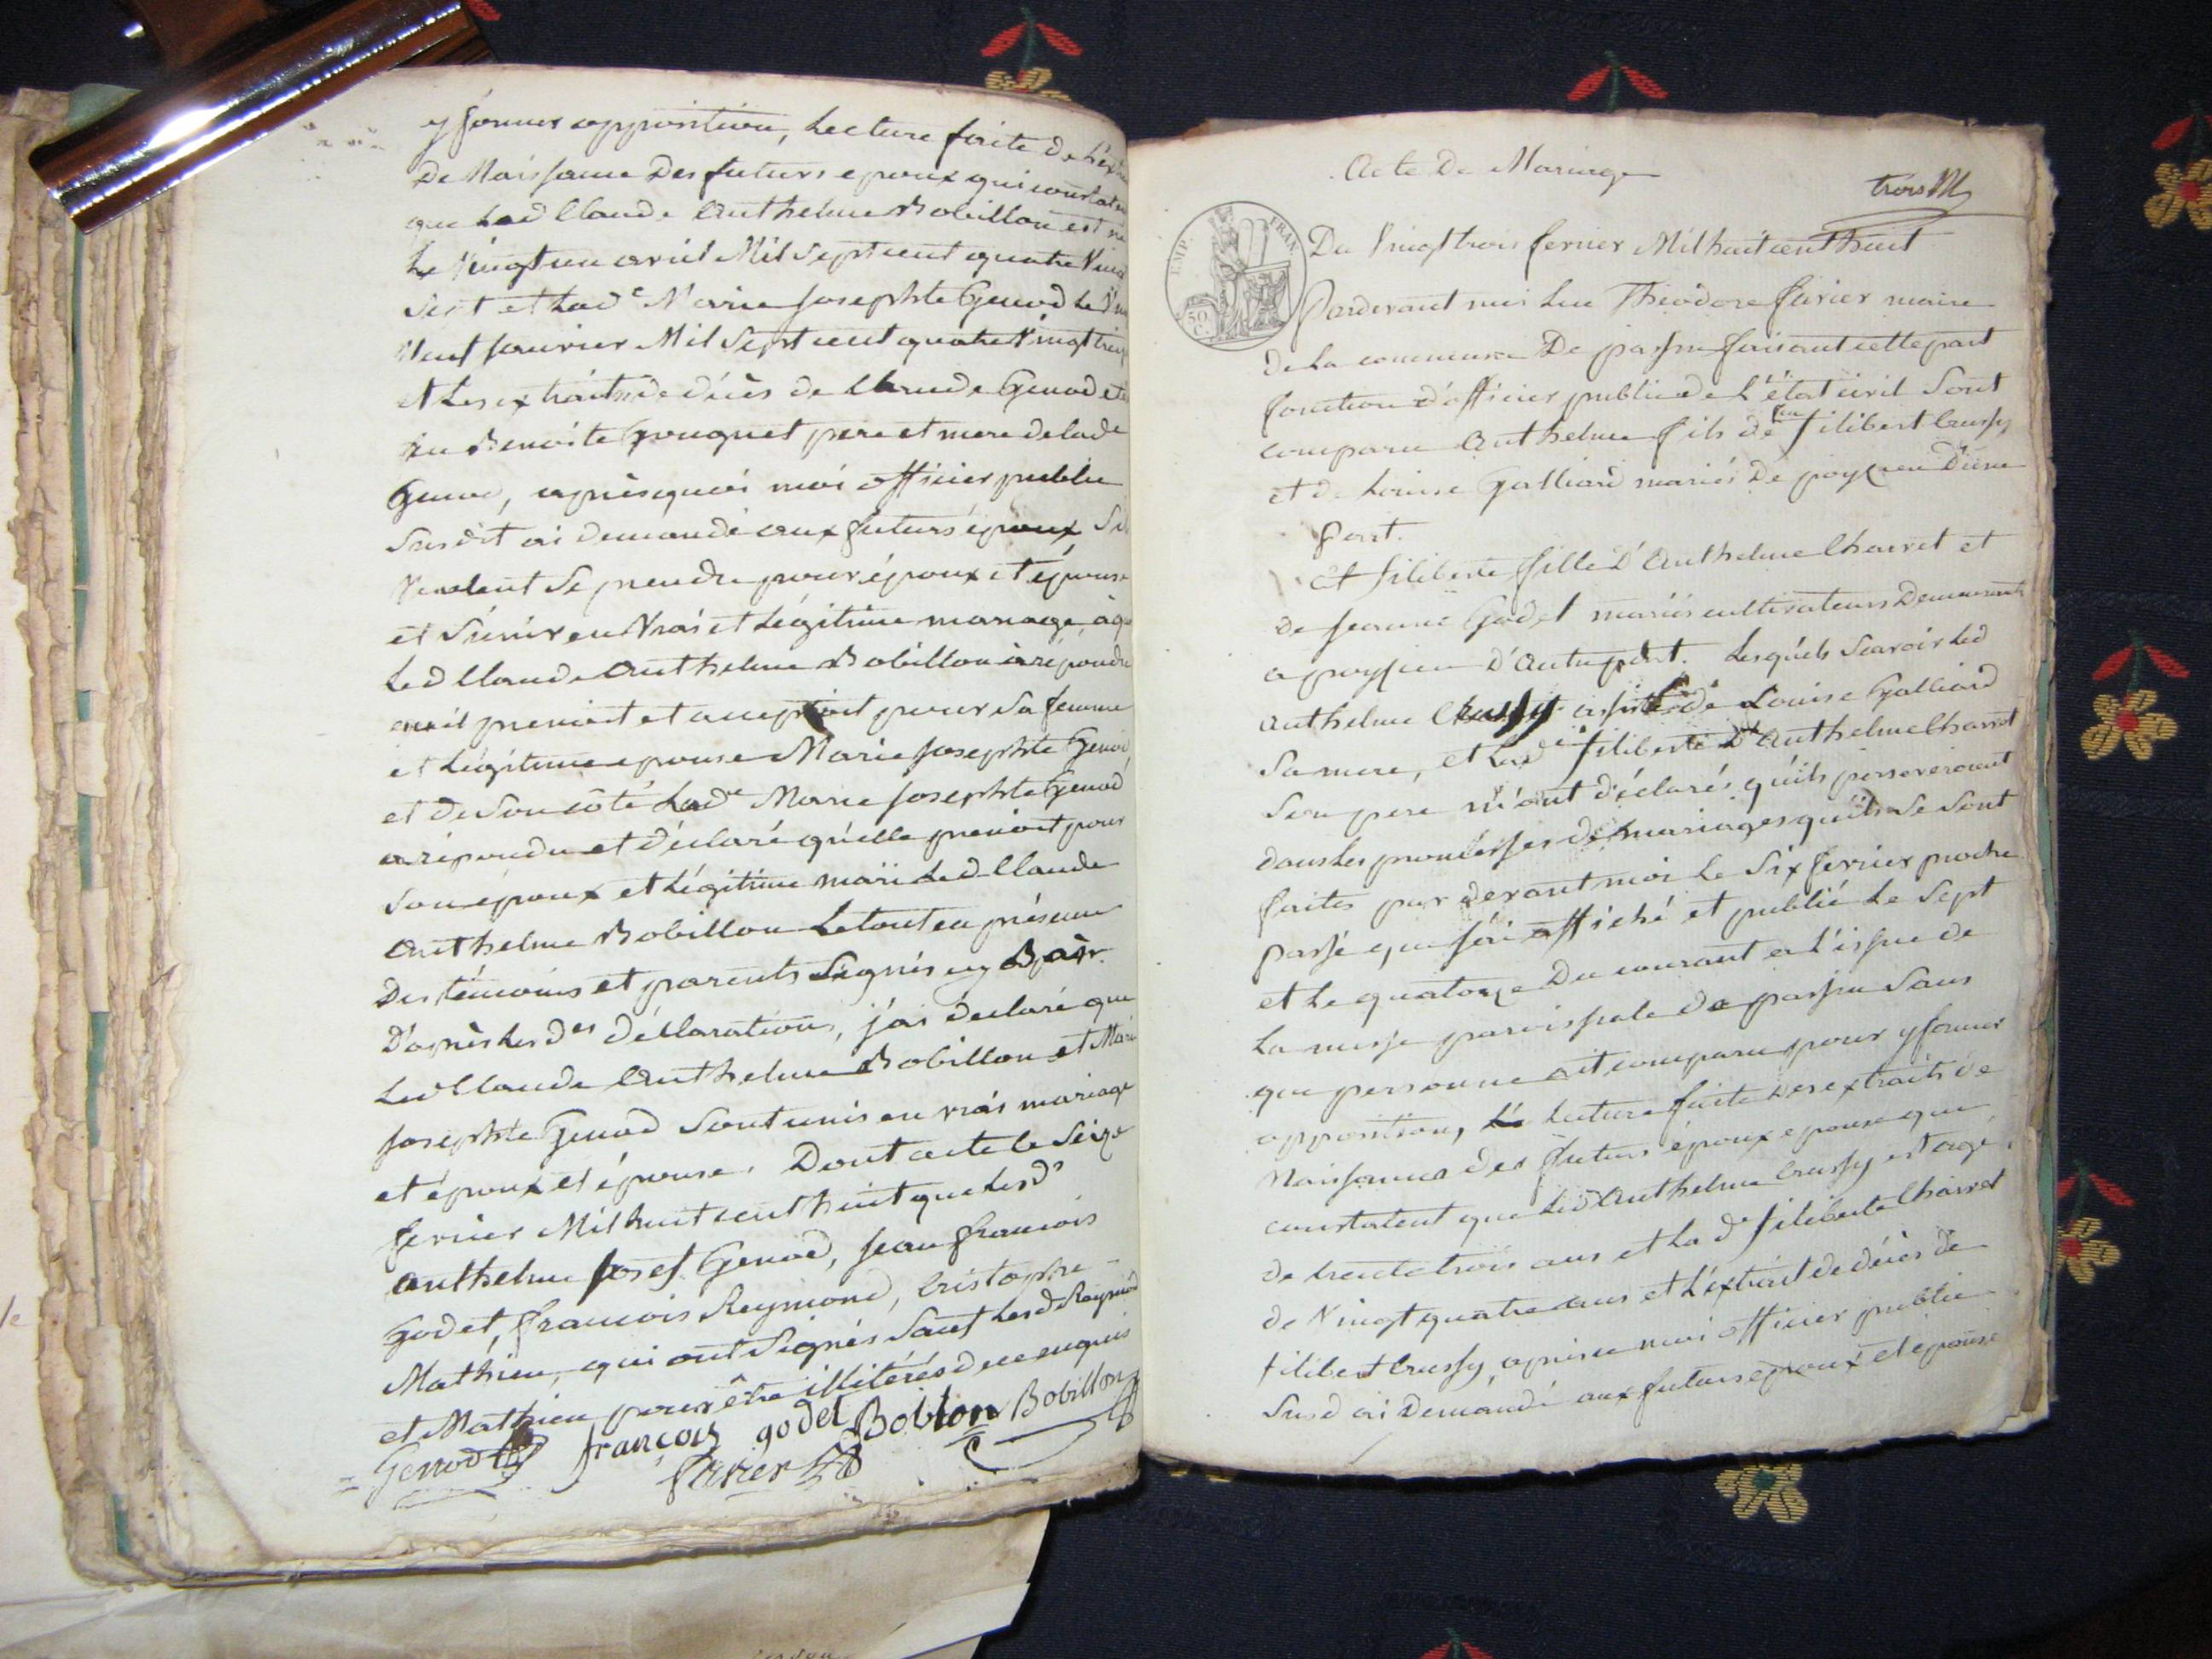 y former opposition, Lecture faite de L'ex
De Naissance Des futurs epoux qui constate
que Led Claude Anthelme Bobillon est né
Le Vingt un avril Mil Sept cent quatre Vin
Sept et Lade Marie Josephte Genod Le
Neuf Janvier Mil Sept cent quatre Vingt
et Les extraits de décès de Claude Genod et
Benoite Gouguet pere et mere de lade
Genod, après quoi moi officier public
Susdit ai demandé aux futurs époux S'il
Veulent Se prendre pour époux et épouse
et S'unir en Vrai et Légitime mariage, à q
Led Claude Anthelme Bobillon a répondu
qu'il prenoit et acceptoit pour Sa femme
et Légitime epouse Marie Josephte Genod
et De Son côté Lade Marie Josephte Genod
a répondu et déclaré qu'elle prenoit pour
Son époux et Légitime mari Led Claude
Anthelme Bobillon Le tout en présence
Des témoins et parents Signés
D'après Les des déclarations, j'ai déclaré que
Led Claude Anthelme Bobillon et Mari
Josephte Genod Sont unis en vrai mariage
et époux et épouse. Dont acte le Seize
fevrier Mil huit cent huit que Lesds
Anthelme Josef Genod, Jean françois
Godet, françois Reymond, Cristophe
Mathieu, qui ont Signés Sauf Lesd Reymond
et Mathieu pour être illitérés de ce enquis
Genod françois godet Bobilon Bobillon
favier
Acte De Mariage
trois
EMP. FRAN.
50 C.
Du Vingt trois fevrier Mil huit cent huit
Pardevant moi Luc Théodore favier maire
de La commune De faisant cette part
fonction d'officier public de L'état civil Sont
comparu Anthelme fils de feu filibert Crussy
et de Louise Galliard mariés De poysieu D'une
Part.
Et filiberte fille D'Anthelme Charret et
De Jeanne Godet mariés cultivateurs Demeurants
a poysieu D'autre part. Lesquels Scavoir Led
Anthelme Crussy assisté de Louise Galliard
Sa mere, et Lade filiberte D'Anthelme Charret
Son pere m'ont déclarés qu'ils perseveroient
dans Les promesses de mariages qu'ils Se Sont
faites par devant moi Le Six fevrier proche
passé que j'ai affiché et publié Le Sept
et Le quatorze Du courant a L'issue de
La messe paroissiale de Sans
que personne ait comparu pour y former
opposition, Lecture faite Des extraits de
Naissance des futurs époux epouse que
constatent que Led Anthelme Crussy est agé
de trente trois ans et La de filiberte Charret
de Vingt quatre ans et L'extrait de décès de
filibert Crussy, moi officier public
Susd ai Demandé aux futurs epoux et epouse